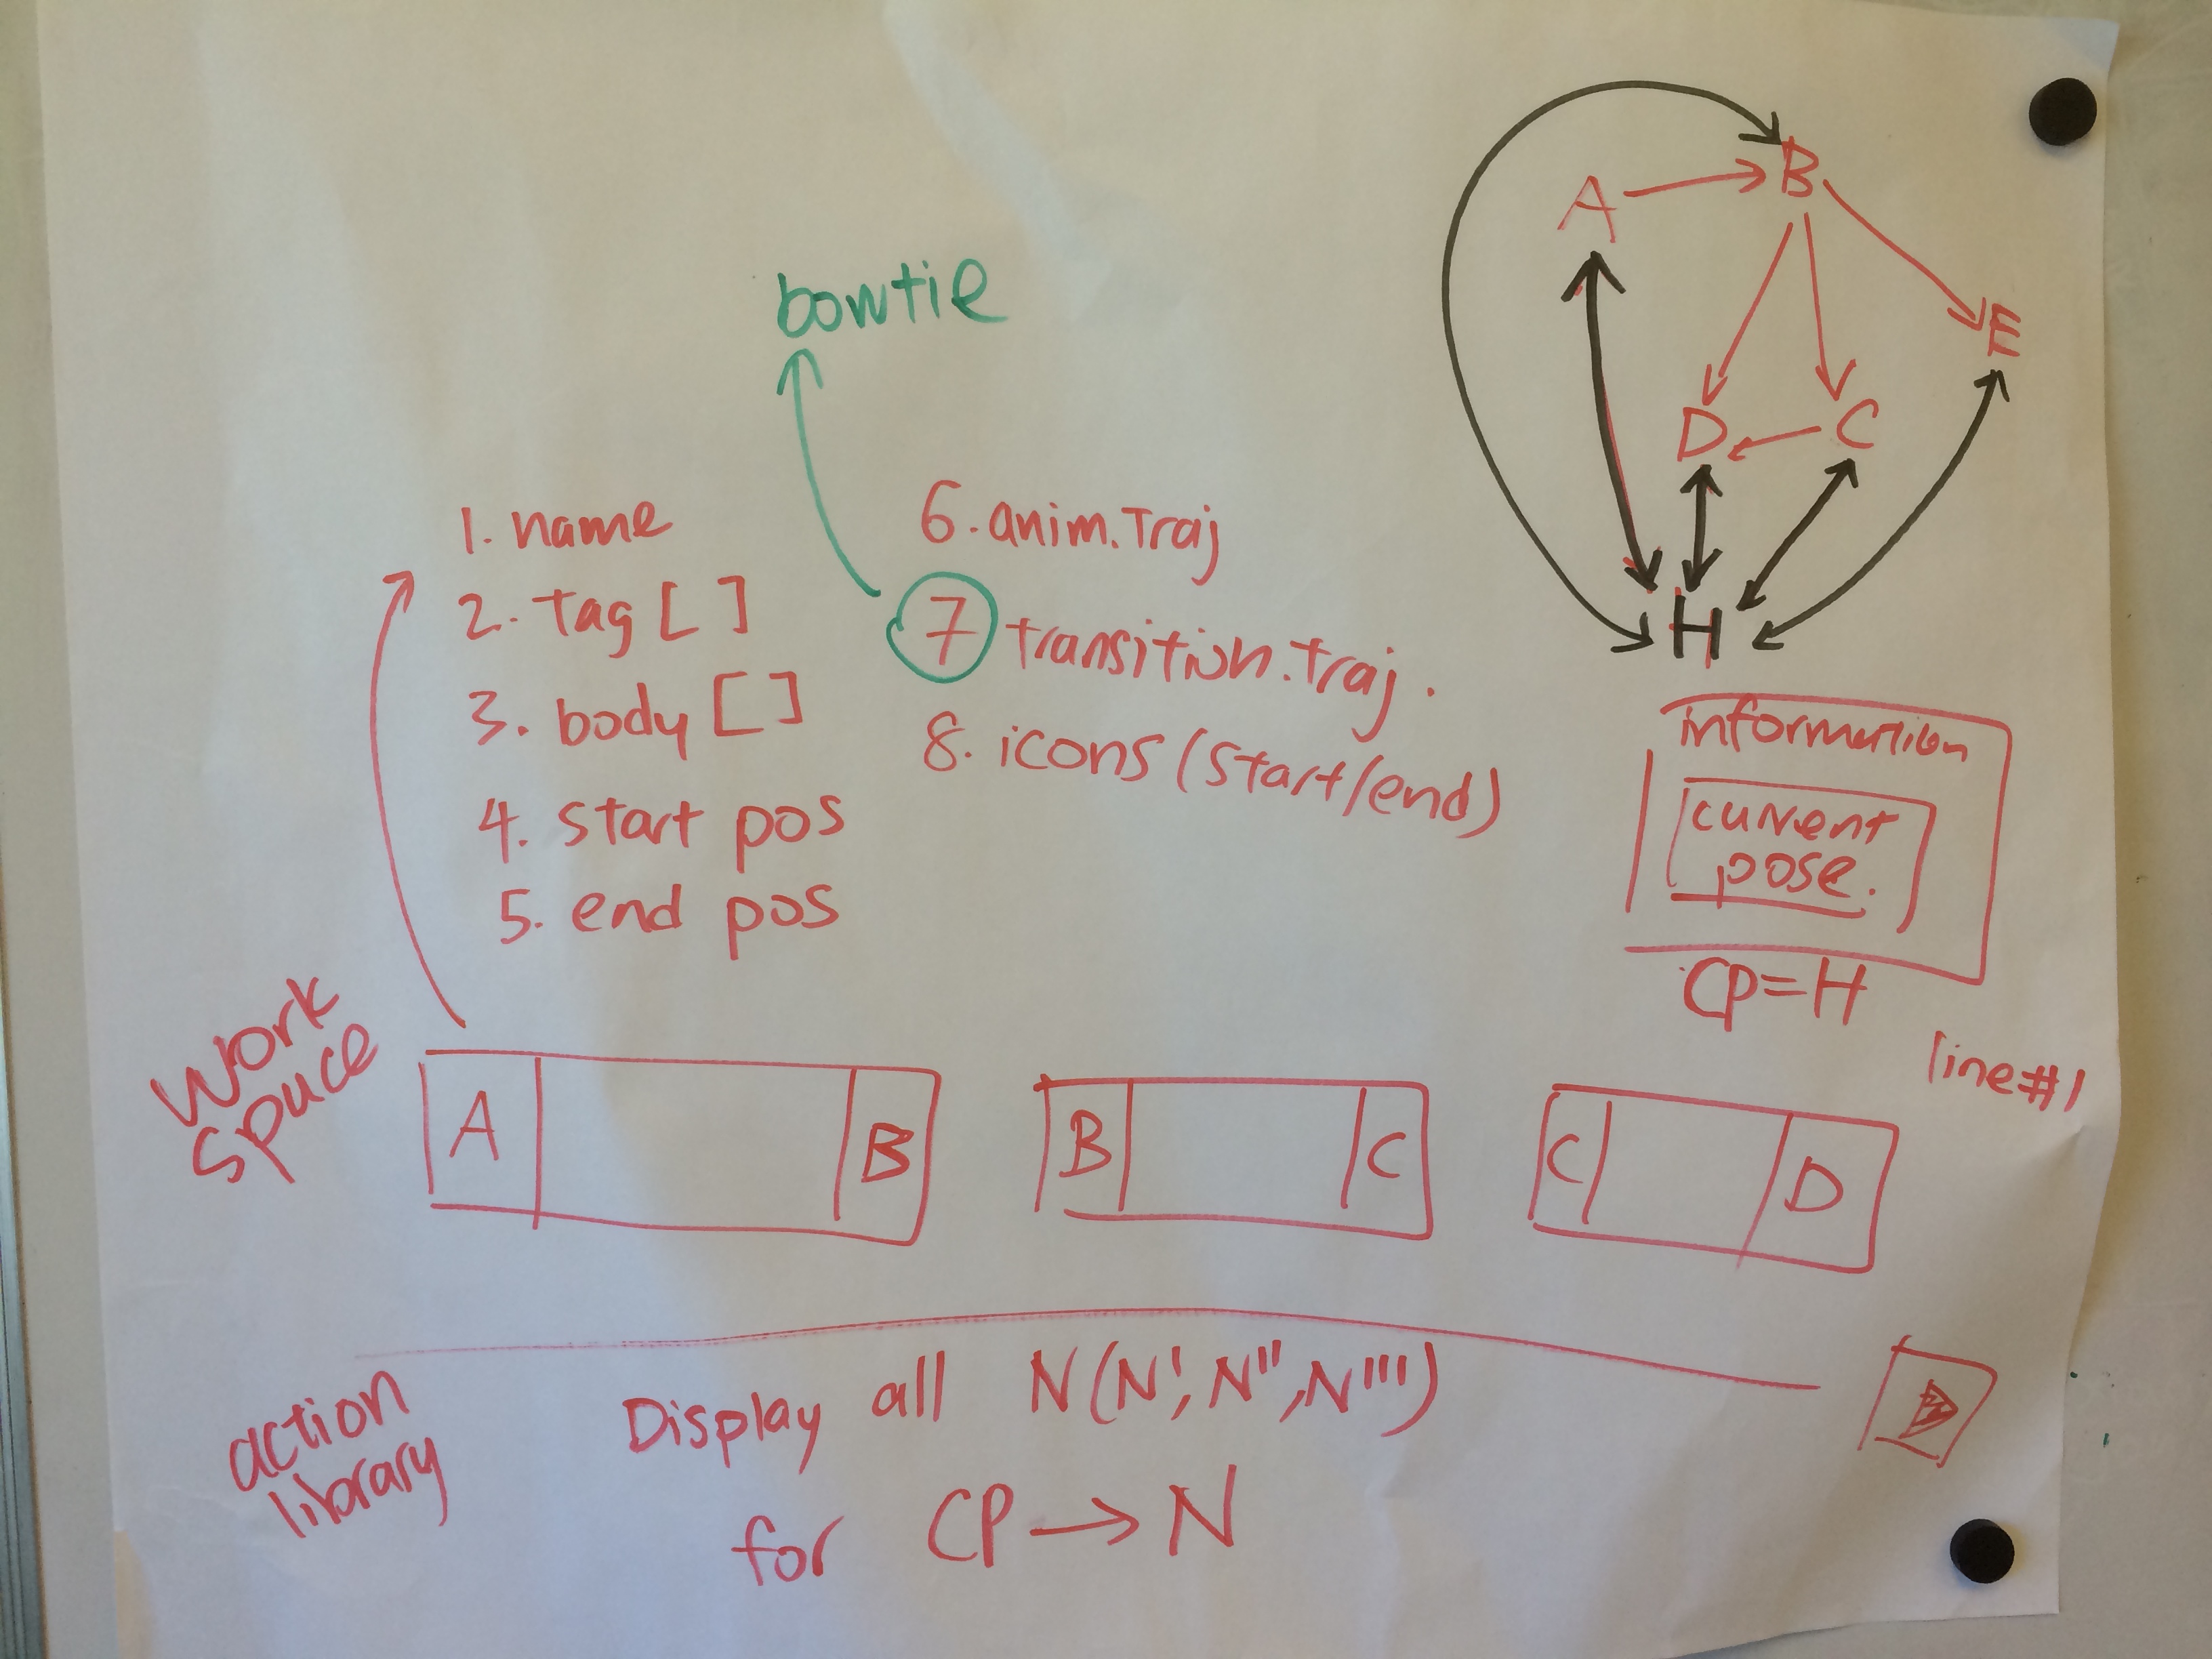 bowtie
1. name
2. tag [ ]
3. body [ ]
4. start pos
5. end pos
6. anim. Traj
7 transition. traj.
8. icons (start/end)
A
B
E
D
C
H
information
current
pose.
CP=H
line#1
Work
Space
A
B
B
C
C
D
action
library
Display all N(N', N'', N''')
for CP → N